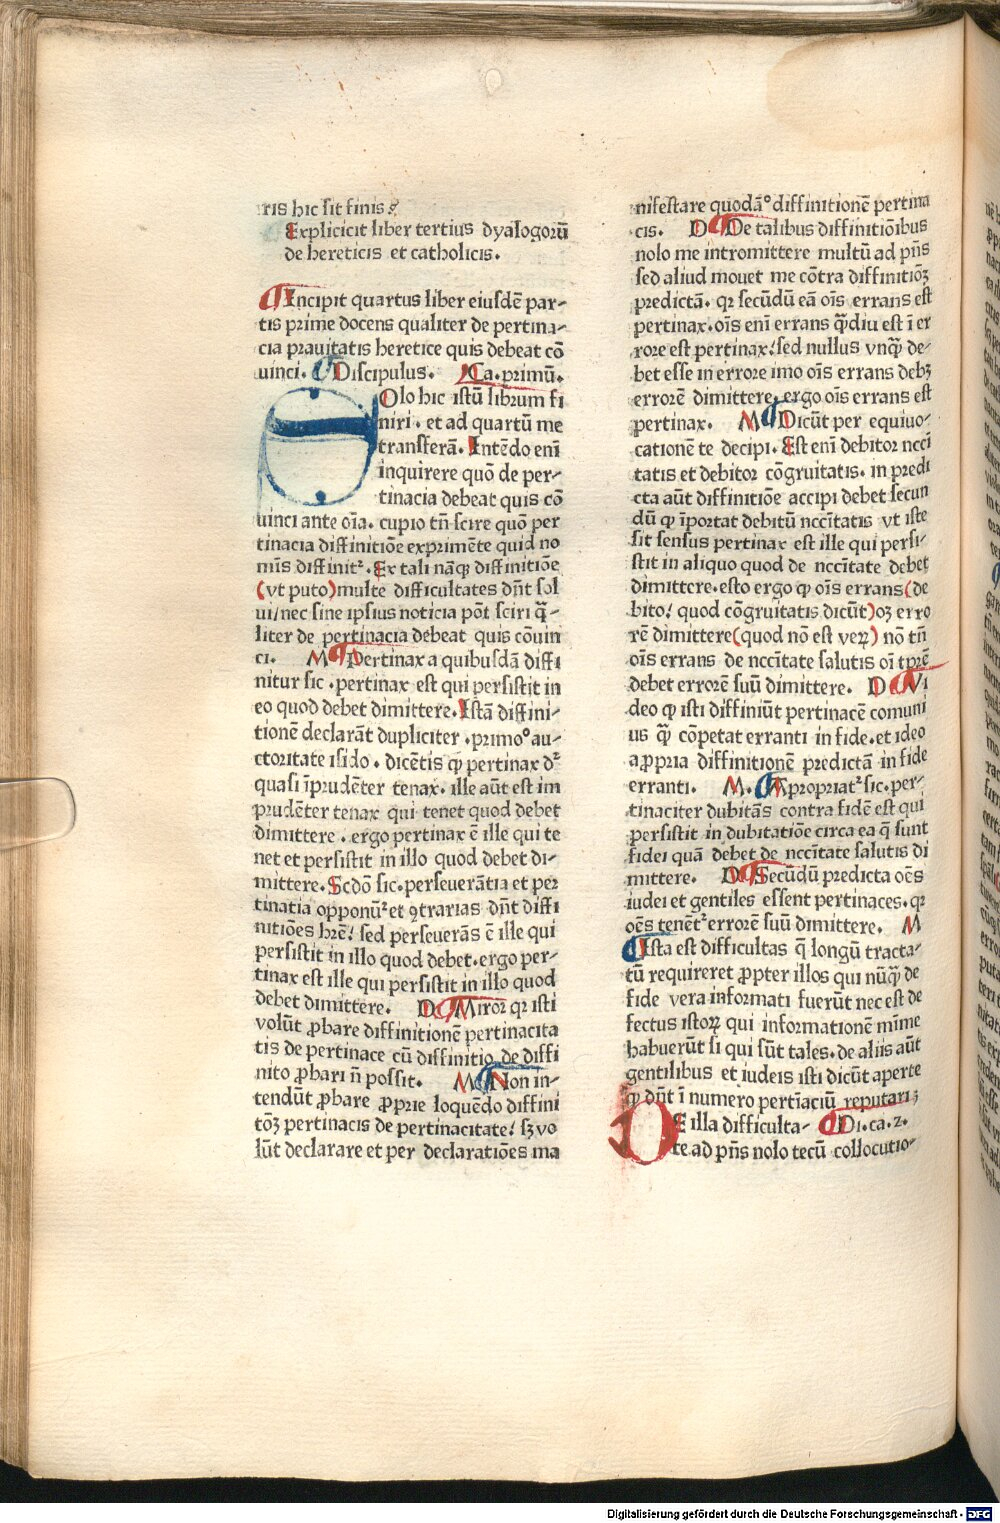 ris hic sit finis
Explicicit liber tertius dyalogorū
de hereticis et catholicis.
Incipit quartus liber eiusdē par-
tis prime docens qualiter de pertina-
cia prauitatis heretice quis debeat cō
uinci. Discipulus. Ca. primū.
Olo hic istū librum fi
niri. et ad quartū me
transferā. Intēdo eni
inquirere quō de per-
tinacia debeat quis cō
uinci ante oīa. cupio tn̄ scire quō per
tinacia diffinitiōe exprimēte quid no
mīs diffinit². Ex tali nāq; diffinitiōe
(vt puto) multe difficultates dn̄t sol
ui/nec sine ipsius noticia pōt sciri q̄-
liter de pertinacia debeat quis cōuin
ci. M Pertinax a quibusdā diffi
nitur sic. pertinax est qui persistit in
eo quod debet dimittere. Istā diffini-
tionē declarāt dupliciter. primoᵒ au-
ctoritate isido. dicētis ꝙ pertinax d²
quasi īprudēter tenax. ille aūt est im
prudēter tenax qui tenet quod debet
dimittere. ergo pertinax ē ille qui te
net et persistit in illo quod debet di-
mittere. Scdō sic. perseuerātia et per
tinatia opponū² et ꝯtrarias dn̄t diffi
nitiōes hr̄e! sed perseuerās ē ille qui
persistit in illo quod debet. ergo per-
tinax est ille qui persistit in illo quod
debet dimittere. D. Miror qr isti
volūt ꝓbare diffinitionē pertinacita
tis de pertinace cū diffinitio de diffi
nito ꝓbari n̄ possit. M Non in-
tendūt ꝓbare ꝓprie loquēdo diffini
tōꝫ pertinacis de pertinacitate! sꝫ vo
lūt declarare et per declaratiōes ma
nifestare quodāᵒ diffinitionē pertina
cis. D De talibus diffinitiōibus
nolo me intromittere multū ad pn̄s
sed aliud mouet me cōtra diffinitiōꝫ
predictā. qr secūdū eā oīs errans est
pertinax. oīs eni errans q̄diu est ī er
rore est pertinax! sed nullus vnq̄ de-
bet esse in errore imo oīs errans debꝫ
errorē dimittere. ergo oīs errans est
pertinax. M Dicūt per equiuo-
cationē te decipi. Est eni debitor ncci
tatis et debitor cōgruitatis. in predi
cta aūt diffinitiōe accipi debet secun
dū ꝙ īportat debitū nccītatis vt iste
sit sensus pertinax est ille qui persi-
stit in aliquo quod de nccītate debet
dimittere. esto ergo ꝙ oīs errans (de
bito! quod cōgruitatis dicūt) oꝫ erro
rē dimittere (quod nō est veꝝ) nō tn̄
oīs errans de nccītate salutis oī tpr̄e
debet errorē suū dimittere. D Vi
deo ꝙ isti diffiniūt pertinacē comuni
us q̄ cōpetat erranti in fide. et ideo
aꝓpria diffinitionē predictā in fide
erranti. M. Apropriat² sic. per-
tinaciter dubitās contra fidē est qui
persistit in dubitatiōe circa ea q̄ sunt
fidei quā debet de nccītate salutis di
mittere. D. Secūdū predicta oēs
iudei et gentiles essent pertinaces. qr
oēs tenēt² errorē suū dimittere. M
Ista est difficultas q̄ longū tracta-
tū requireret ꝓpter illos qui nūq̄ de
fide vera informati fuerūt nec est de
fectus istoꝝ qui informationē mīme
habuerūt si qui sūt tales. de aliis aūt
gentilibus et iudeis isti dicūt aperte
ꝙ dn̄t ī numero pertīaciū reputari;
DE illa difficulta- Di. ca. 2.
te ad pn̄s nolo tecū collocutio-
Digitalisierung gefördert durch die Deutsche Forschungsgemeinschaft - DFG